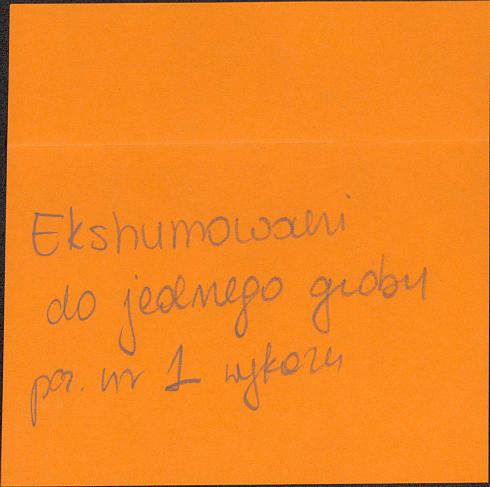 Ekshumowani
do jednego grobu
poz. nr 1 wykazu